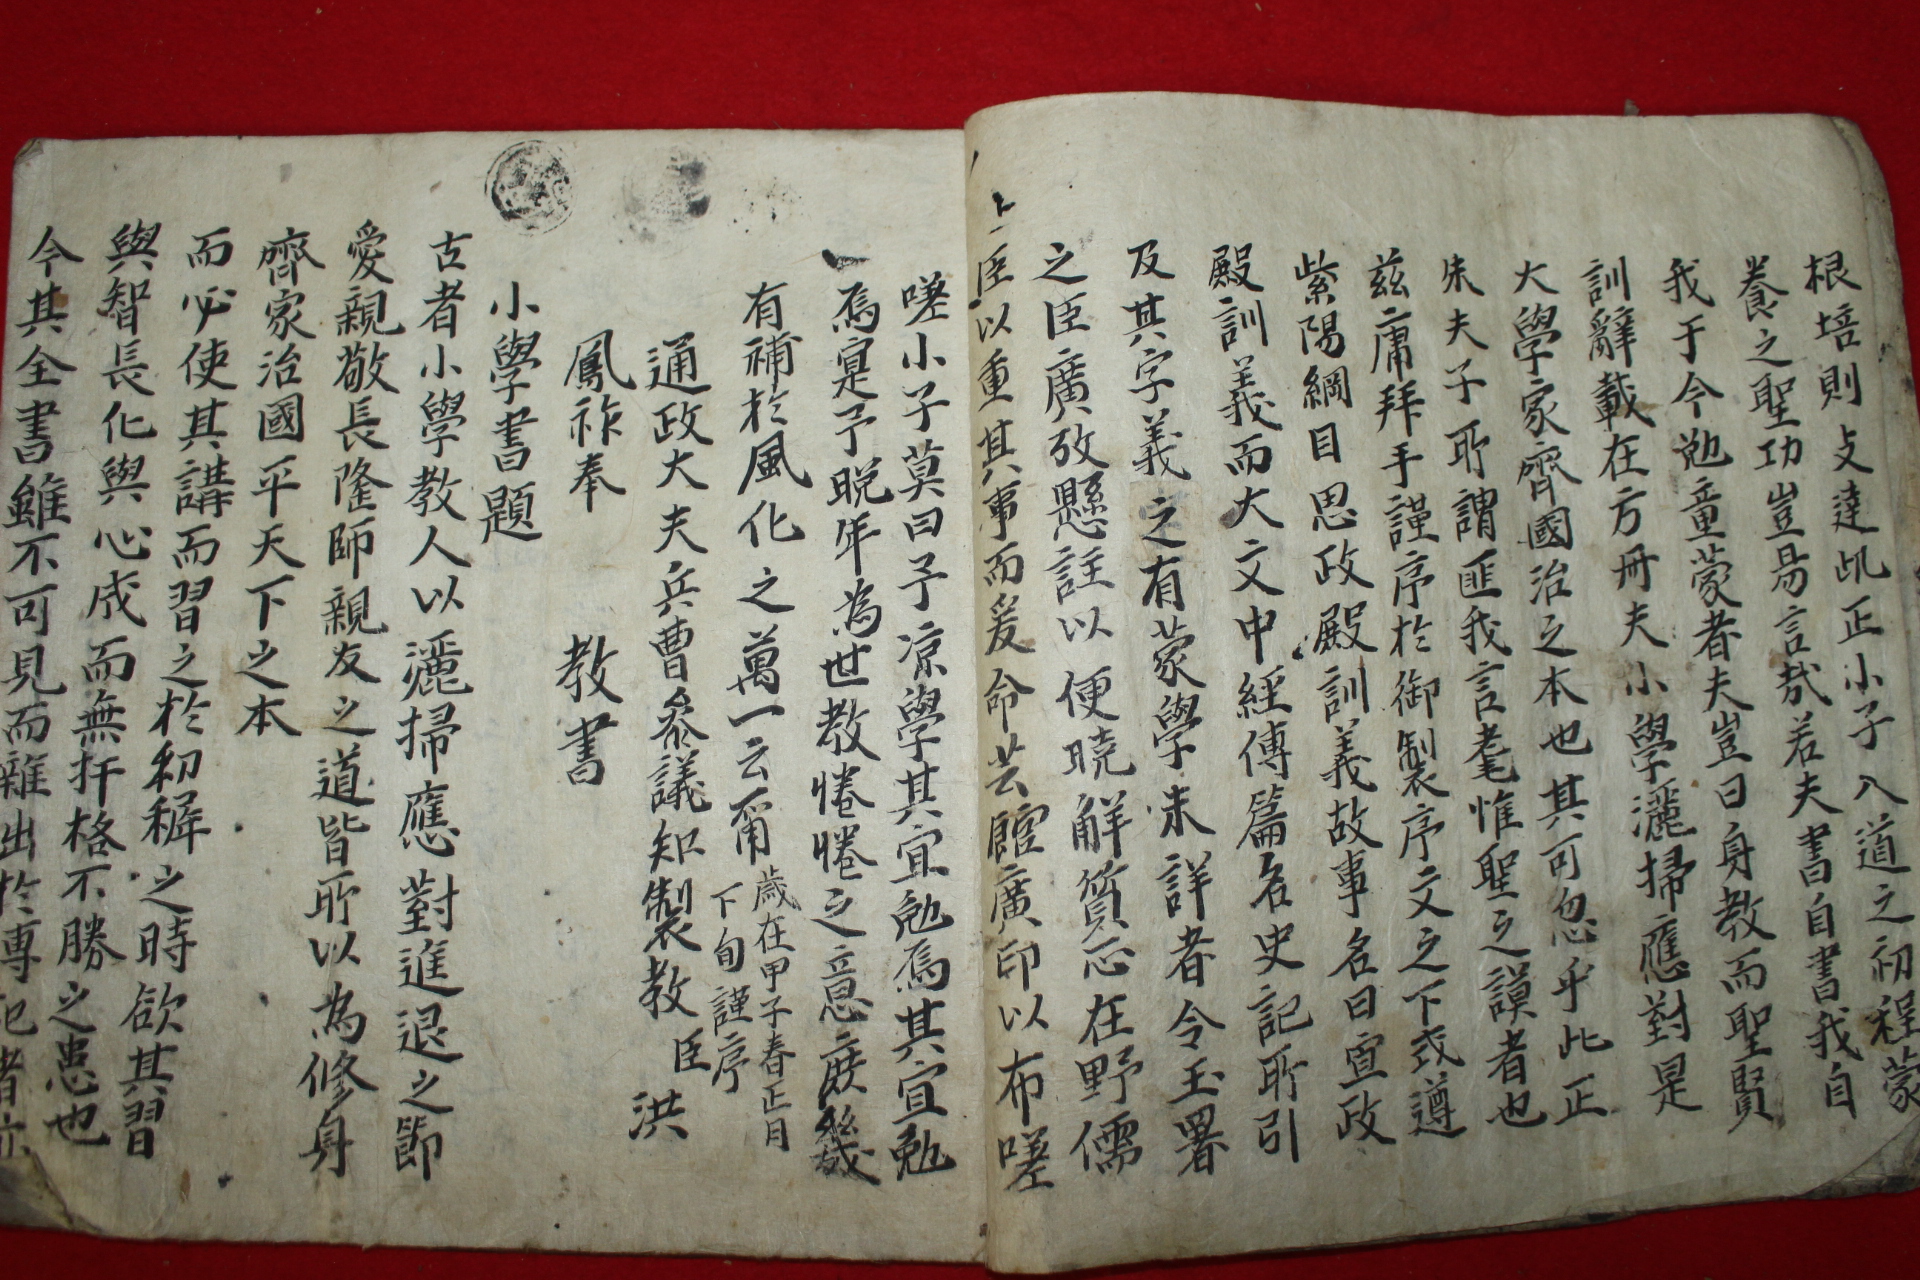 根培則支達此正小子入道之初程蒙
養之聖功豈易言哉若夫書自書我自
我于今勉童蒙者夫豈曰身教而聖賢
訓辭載在方冊夫小學灑掃應對是
大學家齊國治之本也其可忽乎此正
朱夫子所謂匪我言耄惟聖之謨者也
玆庸拜手謹序於御製序文之下或遵
紫陽綱目思政殿訓義故事名曰宣政
殿訓義而大文中經傳篇名史記所引
及其字義之有蒙學未詳者令玉署
之臣廣攷懸註以便曉解質正在野儒
臣以重其事而爰命芸館廣印以布嗟
嗟小子莫曰予凉學其宜勉焉其宜勉
焉寔予晩年為世教惓惓之意庶幾
有補於風化之萬一云甭歲在甲子春正月
下旬謹序
通政大夫兵曹叅議知製教臣洪
鳳祚奉 教書
小學書題
古者小學教人以灑掃應對進退之節
愛親敬長隆師親友之道皆所以為修身
齊家治國平天下之本
而必使其講而習之於初穉之時欲其習
與智長化與心成而無扞格不勝之患也
今其全書雖不可見而雜出於傳記者亦